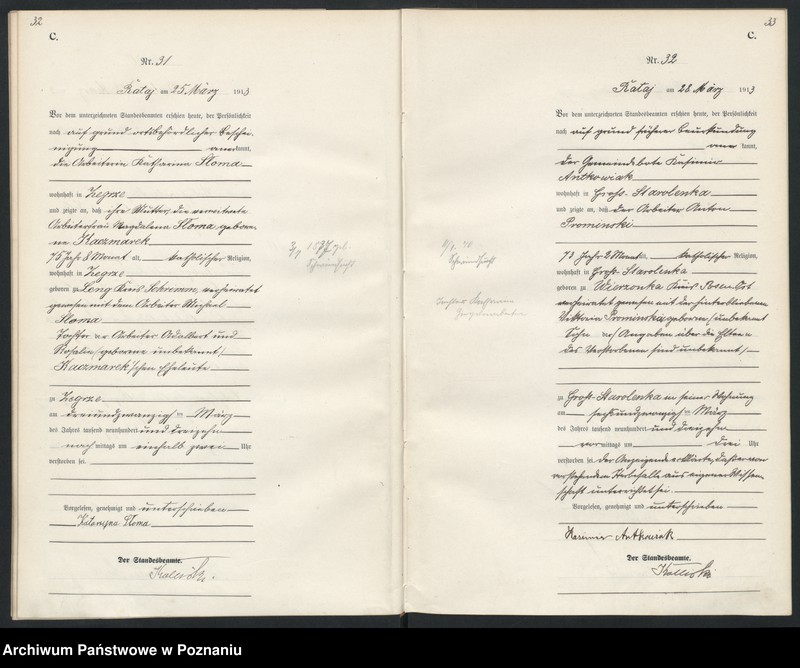 32
C.
Nr. 31
Rataj am 25. März 1913
Vor dem unterzeichneten Standesbeamten erschien heute, der Persönlichkeit
nach auf Grund ortsbehördlicher Beschei-
nigung anerkannt,
die Arbeiterin Katharina Słoma
wohnhaft in Zegrze
und zeigte an, daß ihre Mutter, die verwitwete
Arbeiterfrau Magdalena Słoma gebore-
ne Kaczmarek
75 Jahr 8 Monat alt, katholischer Religion,
wohnhaft in Zegrze
geboren zu Kreis Schrimm, verheiratet
gewesen mit dem Arbeiter Michael
Słoma
Tochter der Arbeiter Adalbert und
Rosalia (geborene unbekannt)
Kaczmarek'schen Eheleute
zu Zegrze
am dreiundzwanzigsten März
des Jahres tausend neunhundert und dreizehn
nachmittags um einhalb zwei Uhr
verstorben sei.
Vorgelesen, genehmigt und unterschrieben
Katarzyna Słoma
Der Standesbeamte.
33
C.
Nr. 32
Rataj am 28. März 1913
Vor dem unterzeichneten Standesbeamten erschien heute, der Persönlichkeit
nach auf Grund früherer Beurkundung
anerkannt,
der Gemeindebote Kasimir
Antkowiak
wohnhaft in Groß-Starolenka
und zeigte an, daß der Arbeiter Anton
Prominski
73 Jahr 2 Monat alt, katholischer Religion,
wohnhaft in Groß-Starolenka
geboren zu Wierzonka Kreis Posen Ost
verheiratet gewesen mit der hinterbliebenen
Viktoria Prominska geborene (unbekannt
Sohn der (Angaben über die Eltern
des Verstorbenen sind unbekannt)
zu Groß-Starolenka in seiner Wohnung
am sechsundzwanzigsten März
des Jahres tausend neunhundert und dreizehn
vormittags um drei Uhr
verstorben sei. Der Anzeigende erklärte, daß er von
vorstehendem Sterbefalle aus eigener Wissen-
schaft unterrichtet sei.
Vorgelesen, genehmigt und unterschrieben
Antkowiak
Der Standesbeamte.
Archiwum Państwowe w Poznaniu